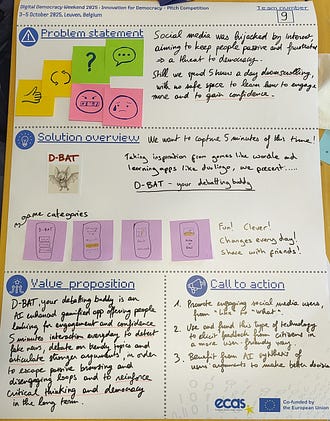 Digital Democracy Weekend 2025 - Innovation for Democracy - Pitch Competition
3-5 October 2025, Leuven, Belgium
Team number
9
Problem statement
Social media was hijacked by interest,
aiming to keep people passive and frustrated
→ a threat to democracy.
Still we spend 5 hours a day doomscrolling,
with no safe space to learn how to engage
more and to gain confidence.
?
Solution overview
We want to capture 5 minutes of this time!
D-BAT
Taking inspiration from games like wordle and
learning apps like duolingo, we present.....
D-BAT - your debatting buddy
game categories
Fun! Clever!
Changes every day!
Share with friends!
Value proposition
D-BAT, your debating buddy is an
AI enhanced gamified app offering people
looking for engagement and confidence
5 minutes interaction everyday to detect
fake news, debate on trendy topics and
articulate stronger arguments, in order
to escape passive browsing and
disengaging loops and to reinforce
critical thinking and democracy
in the long term.
Call to action
1. Promote engaging social media users
from "like" to "what".
2. Use and fund this type of technology
to elicit feedback from citizens in
a more user-friendly way.
3. Benefit from AI synthesis of
users arguments to make better decisions
ecas
Co-funded by
the European Union